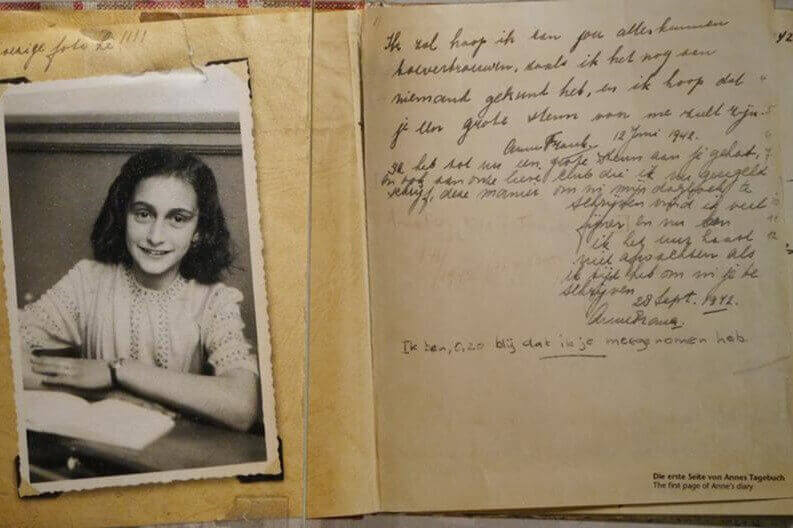 foto
!!!!
Ik zal hoop ik aan jou alles kunnen
toevertrouwen, zoals ik het nog aan
niemand gekund heb, en ik hoop dat
je een grote steun voor me zult zijn.
Anne Frank. 12 Juni 1942.
Ik heb tot nu een grote steun aan je gehad,
en ook aan onze lieve club die ik nu geregeld
schrijf, deze manier om in mijn dagboek te
schrijven vind ik veel
fijner en nu kan
ik het uur haast
niet afwachten als
ik tijd heb om in je te
schrijven
28 Sept. 1942.
Anne Frank
Ik ben, O, zo blij dat ik je meegenomen heb.
42
Die erste Seite von Annes Tagebuch
The first page of Anne's diary